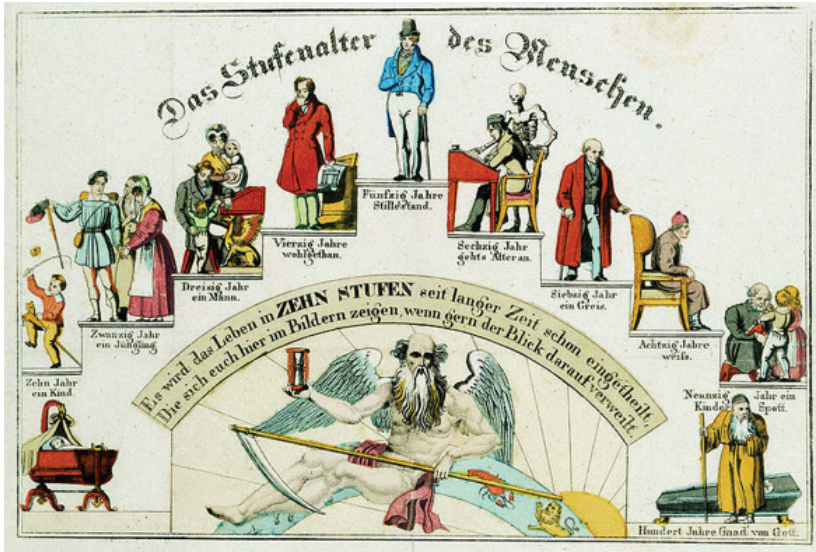 Das Stufenalter des Menschen.
Zehn Jahr
ein Kind.
Zwanzig Jahr
ein Jüngling
Dreisig Jahr
ein Mann.
Vierzig Jahr
wohlgethan.
Fünfzig Jahre
Stillestand.
Sechzig Jahr
gehts Älter an.
Siebzig Jahr
ein Greis.
Achtzig Jahre
weifs.
Neunzig Jahr ein
Kinder Spott.
Hundert Jahre Gnad' von Gott.
Es wird das Leben in ZEHN STUFEN seit langer Zeit schon eingetheilt,
Die sich euch hier im Bildern zeigen, wenn gern der Blick darauf verweilt.